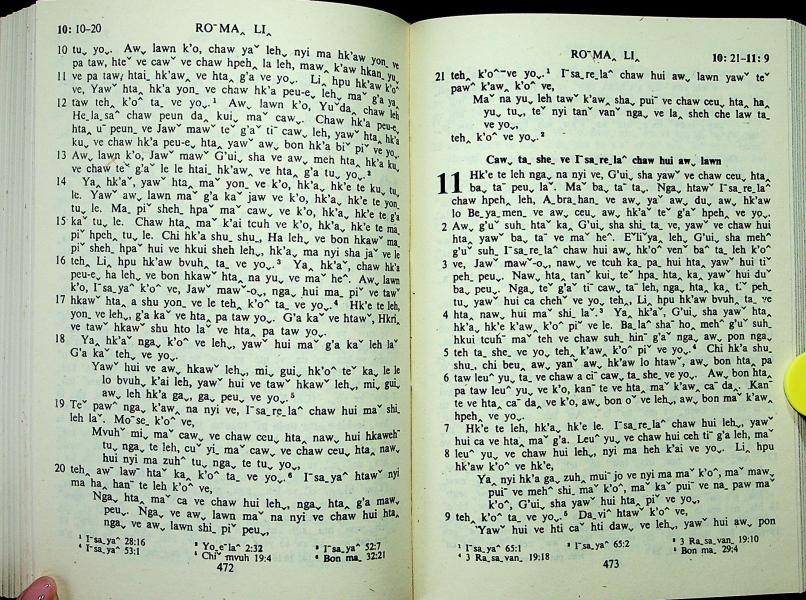 10: 10–20 RO ̄ MA‸ LI‸
10 tu˯ yo⌄. Aw⌄ lawn k'o, chaw yaˇ leh⌄ nyi ma hk'aw yon_ ve
pa taw, hteˇ ve cawˇ ve chaw hpeh⌄ la leh, maw‸ k'aw hkan_ yu‸
11 ve pa taw⌄ htai_ hk'aw‸ ve hta‸ g'a ve yo⌄. Li‸ hpu hk'aw k'oˆ
ve, Yawˇ hta‸ hk'a yon_ ve chaw hk'a peu-e, leh⌄ maˇ g'a ya_
12 taw teh‸ k'oˆ ta_ ve yo⌄.¹ Aw⌄ lawn k'o, Yuˇda‸ chaw leh
He_la_saˆ chaw peun da‸ kui⌄ maˇ caw⌄. Chaw hk'a peu-e,
hta‸ uˉ peun⌄ ve Jawˇ mawˇ teˇ g'aˇ tiˉ caw⌄ leh, yawˇ hta‸ hk'a
ku⌄ ve chaw hk'a peu-e, hta‸ yawˇ aw⌄ bon hk'a biˇ piˇ ve yo⌄.
13 Aw⌄ lawn k'o, Jawˇ mawˇ G'ui⌄ sha ve aw⌄ meh hta‸ hk'a ku⌄
ve chaw teˇ g'aˇ le le htai_ hk'aw‸ ve hta‸ g'a tu⌄ yo⌄.²
14 Ya‸ hk'aˇ, yawˇ hta‸ maˇ yon_ ve k'o, hk'a‸ hk'e te ku⌄ tu⌄
le. Yawˇ aw⌄ lawn maˇ g'a kaˇ jaw ve k'o, hk'a‸ hk'e te yon_
tu⌄ le. Ma_ piˇ sheh_ hpaˇ maˇ caw⌄ ve k'o, hk'a‸ hk'e te g'a
15 kaˇ tu⌄ le. Chaw hta‸ maˇ k'ai tcuh ve k'o, hk'a‸ hk'e te ma_
piˇ hpeh‸ tu⌄ le. Chi hk'a shu_ shu_, Ha leh⌄ ve bon hkawˇ ma_
piˇ sheh_ hpaˇ hui ve hkui sheh leh⌄, hk'a‸ ma nyi sha jaˇ ve le
16 teh‸ Li‸ hpu hk'aw bvuh_ ta_ ve yo⌄.³ Ya‸ hk'aˇ, chaw hk'a
peu-e, ha leh⌄ ve bon hkawˇ hta‸ na yu⌄ ve maˇ heˆ. Aw⌄ lawn
k'o, Iˉsa_yaˆ k'oˆ ve, Jawˇ mawˇ-o⌄, nga⌄ hui ma_ piˇ ve tawˇ
17 hkawˇ hta‸ a shu yon_ ve le teh‸ k'oˆ ta_ ve yo⌄.⁴ Hk'e te leh⌄
yon_ ve leh⌄, g'a kaˇ ve hta‸ pa taw yo⌄. G'a kaˇ ve htawˇ, Hkri_
ve tawˇ hkawˇ shu hto laˇ ve hta‸ pa taw yo⌄.
18 Ya‸ hk'aˇ nga⌄ k'oˆ ve leh⌄, yawˇ hui maˇ g'a kaˇ leh laˇ
G'a kaˇ teh⌄ ve yo⌄.
Yawˇ hui ve aw⌄ hkaw⌄ leh⌄, mi⌄ gui‸ hk'oˆ teˇ ka⌄ le le
lo bvuh‸ k'ai leh, yawˇ hui ve tawˇ hkaw⌄ leh⌄, mi⌄ gui‸
aw⌄ leh hk'a ga‸, ga‸ peu⌄ ve yo⌄.⁵
19 Teˇ pawˆ nga⌄ k'aw‸ na nyi ve, Iˉsa_re_laˆ chaw hui maˇ shi_
leh laˇ. Moˉse_ k'oˆ ve,
Mvuhˇ mi⌄ maˇ caw⌄ ve chaw ceu⌄ hta‸ naw⌄ hui hkawehˉ
tu⌄ nga⌄ te leh, cuˇ yi⌄ maˇ caw⌄ ve chaw ceu⌄ hta‸ naw⌄
hui nyi ma zuhˆ tu⌄ nga⌄ te tu⌄ yo⌄,
20 teh‸ aw⌄ lawˉ htaˇ ka‸ k'oˆ ta_ ve yo⌄.⁶ Iˉsa_yaˆ htawˇ nyi
ma ha‸ hanˉ te leh k'oˆ ve,
Nga⌄ hta‸ maˇ ca ve chaw hui leh⌄, nga⌄ hta‸ g'a maw‸
peu⌄. Nga⌄ ve aw⌄ lawn maˇ na nyi ve chaw hui hta‸
nga⌄ ve aw⌄ lawn shi_ piˇ peu⌄,
¹ Iˉsa_yaˆ 28:16 ² Yo_eˉlaˆ 2:32 ³ Iˉsa_yaˆ 52:7
⁴ Iˉsa_yaˆ 53:1 ⁵ Chiˆ mvuh 19:4 ⁶ Bon ma_ 32:21
472
RO ̄ MA‸ LI‸ 10: 21–11: 9
21 teh‸ k'oˆ ve yo⌄.¹ Iˉsa_re_laˆ chaw hui aw⌄ lawn yawˇ teˇ
pawˆ k'aw‸ k'oˆ ve,
Maˇ na yu⌄ leh tawˇ k'aw‸ sha‸ puiˉ ve chaw ceu⌄ hta‸ ha‸
yu⌄ tu⌄, teˇ nyi tanˇ vanˇ nga⌄ ve la‸ sheh che law ta_
ve yo⌄,
teh‸ k'oˆ ve yo⌄.²
Caw⌄ ta_ she_ ve Iˉsa_re_laˆ chaw hui aw⌄ lawn
11 Hk'e te leh nga⌄ na nyi ve, G'ui⌄ sha yawˇ ve chaw ceu⌄ hta‸
ba⌄ taˉ peu⌄ laˇ. Maˇ ba⌄ taˉ ta_. Nga⌄ htawˇ Iˉsa_re_laˆ
chaw hpeh‸ leh, A_bra_han_ ve aw⌄ yaˇ aw⌄ du‸ aw⌄ hk'aw
lo Be_ya_men_ ve aw⌄ ceu⌄ aw⌄ hk'aˇ teˇ g'aˇ hpeh‸ ve yo⌄.
2 Aw⌄ g'uˇ suh_ htaˇ ka‸ G'ui⌄ sha shi_ ta_ ve, yawˇ ve chaw hui
hta‸ yawˇ ba⌄ taˉ ve maˇ heˆ. Eˉliˆya leh⌄ G'ui⌄ sha mehˆ
g'uˇ suh_ Iˉsa_re_laˆ chaw hui aw⌄ hk'oˆ venˇ baˆ ta_ leh k'oˆ
3 ve, Jawˇ mawˇ-o⌄, naw⌄ ve tcuh ka_ pa_ hui hta‸ yawˇ hui tiˇ
peh_ peu⌄. Naw⌄ hta‸ tanˇ kui⌄ teˇ hpa_ hta‸ ka‸ yawˇ hui duˇ
ba⌄ peu⌄. Nga⌄ teˇ g'aˇ tiˉ caw⌄ taˉ leh, nga⌄ hta‸ ka‸ t⌄ˇ peh_
tu⌄ yawˇ hui ca chehˇ ve yo⌄ teh‸, Li‸ hpu hk'aw bvuh_ ta_ ve
4 hta‸ naw⌄ hui maˇ shi_ laˇ.³ Ya‸ hk'aˇ, G'ui⌄ sha yawˇ hta‸
hk'a‸ hk'e k'aw‸ k'oˆ piˇ ve le. Ba_laˆ shaˉ ho‸ mehˆ g'uˇ suh_
hkui tcuhˉ maˇ teh ve chaw suh_ hinˉ g'aˇ nga⌄ aw⌄ pon nga⌄
5 teh ta_ she_ ve yo⌄ teh‸ k'aw‸ k'oˆ piˇ ve yo⌄.⁴ Chi hk'a shu_
shu_, chi beu‸ aw⌄ yanˇ aw⌄ hk'aw lo htawˇ, aw⌄ bon hta‸ pa
6 taw leuˆ yu⌄ ta_ ve chaw a ciˉ caw⌄ ta_ she_ ve yo⌄. Aw⌄ bon hta‸
pa taw leuˆ yu⌄ ve k'o, kanˉ te ve hta‸ maˇ k'aw‸ caˉ da‸. Kanˉ
te ve hta‸ caˉ da‸ ve k'o, aw⌄ bon oˇ ve leh⌄, aw⌄ bon maˇ k'aw‸
hpeh‸ ve yo⌄.
7 Hk'e te leh, hk'a‸ hk'e le. Iˉsa_re_laˆ chaw hui leh⌄, yawˇ
hui ca ve hta‸ maˇ g'a. Leuˆ yu⌄ ve chaw hui ceh tiˉ g'a leh, maˇ
8 leuˆ yu⌄ ve chaw hui leh⌄, nyi ma heh k'ai ve yo⌄. Li‸ hpu
hk'aw k'oˆ ve hk'e,
Ya‸ nyi hk'a ga‸ zuh‸ muiˉjo ve nyi ma maˇ k'oˆ, maˇ maw‸
puiˉ ve mehˆ shi_ maˇ k'oˆ, maˇ kaˇ puiˉ ve na_ paw maˇ
k'oˆ, G'ui⌄ sha yawˇ hui hta‸ piˇ ve yo⌄,
9 teh‸ k'oˆ ta_ ve yo⌄.⁵ Da_viˆ htawˇ k'oˆ ve,
Yawˇ hui ve hti caˇ hti daw⌄ ve leh⌄, yawˇ hui aw⌄ pon
¹ Iˉsa_yaˆ 65:1 ² Iˉsa_yaˆ 65:2 ³ 3 Ra_sa_van_ 19:10
⁴ 3 Ra_sa_van_ 19:18 ⁵ Bon ma_ 29:4
473